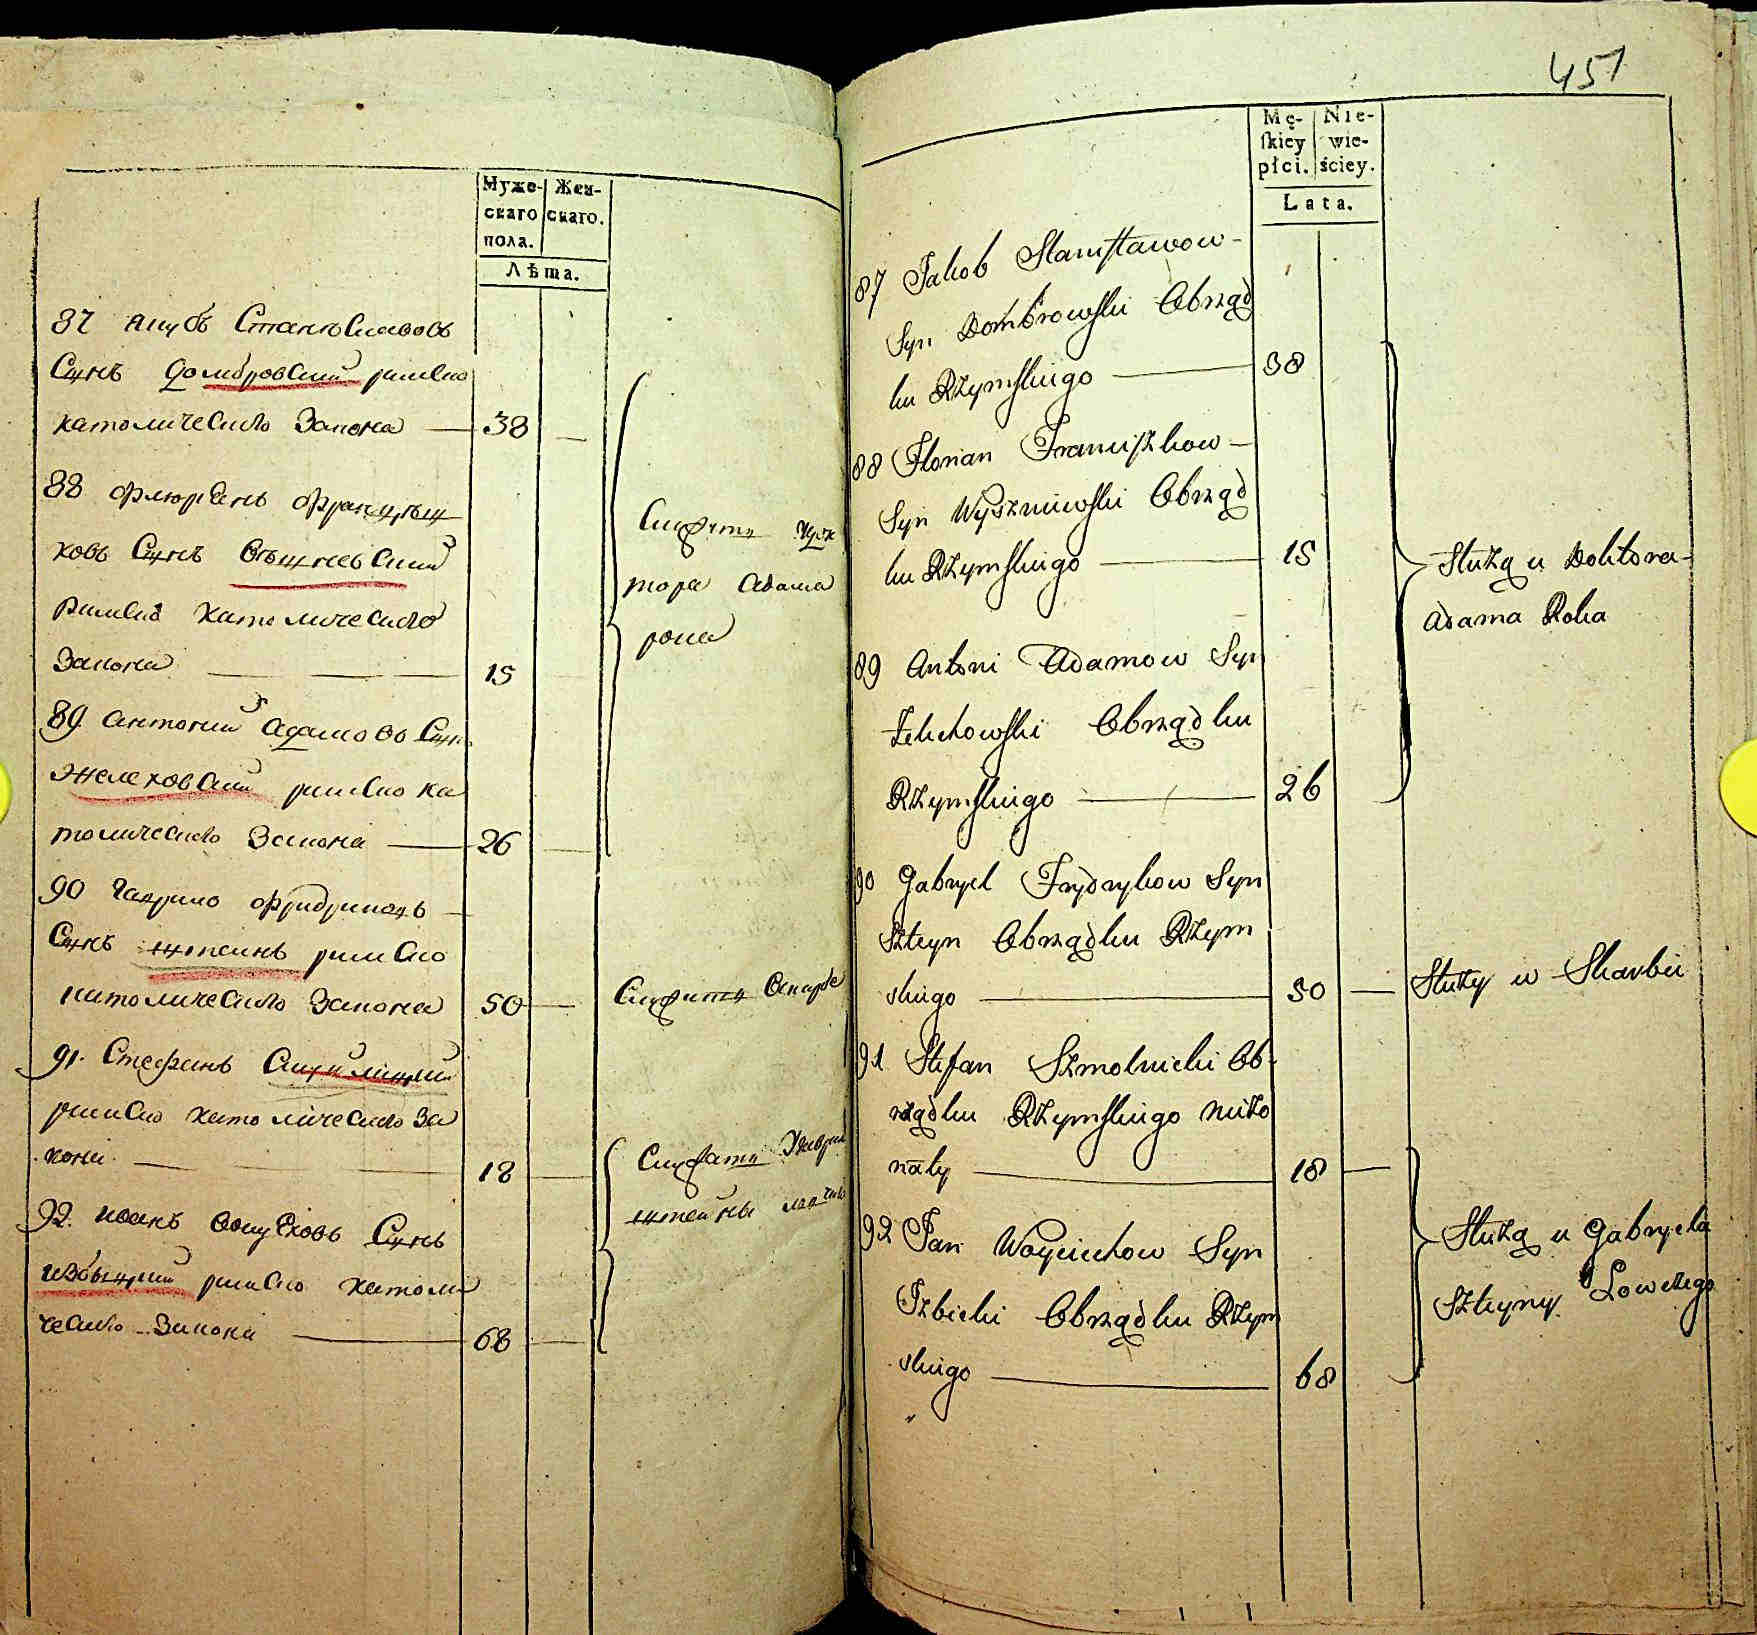 Муже-
скаго
пола.
Жен-
скаго.
Лѣта.
87 Якубъ Станиславовъ
Сынъ Домбровскій римско
католическаго Закона — 38 —
88 Флюріянъ Францыш
ковъ Сынъ Вышневскій
римско католическаго
Закона — — — 15
89 Антоній Адамовъ Сынъ
Желеховскій римско ка
толическаго Закона — 26 —
90 Фридриховъ —
Сынъ Штеинъ римско
католическаго Закона 50 —
91. Стефанъ
римско католическаго За
кона — — — 18 —
92. Иванъ Сынъ
Избыцкій римско католи
ческаго Закона — 68 —
Служатъ
тора Адама
рока
Служитъ
Служатъ
451
Mę-
ſkiey
płci.
Nie-
wie-
ściey.
Lata.
87 Jakob Stanisławow-
Syn Dombrowski Obrząd
ku Rżymskiego — 38
88 Florian Franciszkow —
Syn Wyszniewski Obrząd
ku Rżymskiego — 15
89 Antoni Adamow Syn
Żelichowski Obrządku
Rżymskiego — 26
90 Gabryel Frydrykow Syn
Szteyn Obrządku Rżym
skiego — 50 —
91 Stefan Szmolnicki Ob-
rządku Rżymskiego nieżo
naty — 18 —
92 Jan Woyciechow Syn
Izbicki Obrządku Rżym
skiego — 68
Służą u Doktora-
Adama Roka
Służy w Skarbie
Służą u Gabryela
Szteyny Łowczego